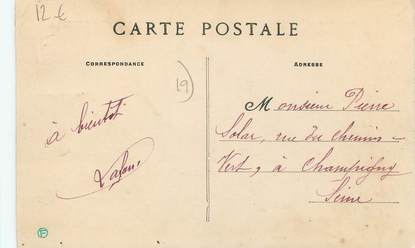 12 €
CARTE POSTALE
CORRESPONDANCE
ADRESSE
19
Monsieur Pierre
Solar, rue du chemin-
Vert, à Champigny
Seine
à bientôt